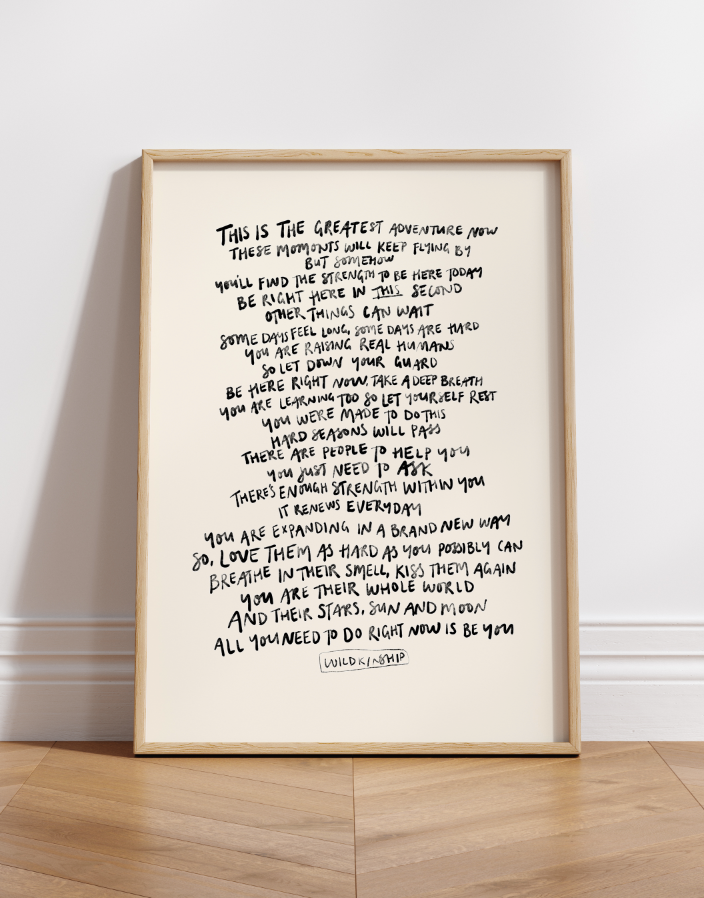 THIS IS THE GREATEST ADVENTURE NOW
THESE MOMONTS WILL KEEP FLYING BY
BUT SOMEHOW
YOU'LL FIND THE STRENGTH TO BE HERE TODAY
BE RIGHT HERE IN THIS SECOND
OTHER THINGS CAN WAIT
SOME DAYS FEEL LONG, SOME DAYS ARE HARD
YOU ARE RAISING REAL HUMANS
SO LET DOWN YOUR GUARD
BE HERE RIGHT NOW, TAKE A DEEP BREATH
YOU ARE LEARNING TOO SO LET YOURSELF REST
YOU WERE MADE TO DO THIS
HARD SEASONS WILL PASS
THERE ARE PEOPLE TO HELP YOU
YOU JUST NEED TO ASK
THERE'S ENOUGH STRENGTH WITHIN YOU
IT RENEWS EVERYDAY
YOU ARE EXPANDING IN A BRAND NEW WAY
SO, LOVE THEM AS HARD AS YOU POSSIBLY CAN
BREATHE IN THEIR SMELL, KISS THEM AGAIN
YOU ARE THEIR WHOLE WORLD
AND THEIR STARS, SUN AND MOON
ALL YOU NEED TO DO RIGHT NOW IS BE YOU
WILDKINSHIP